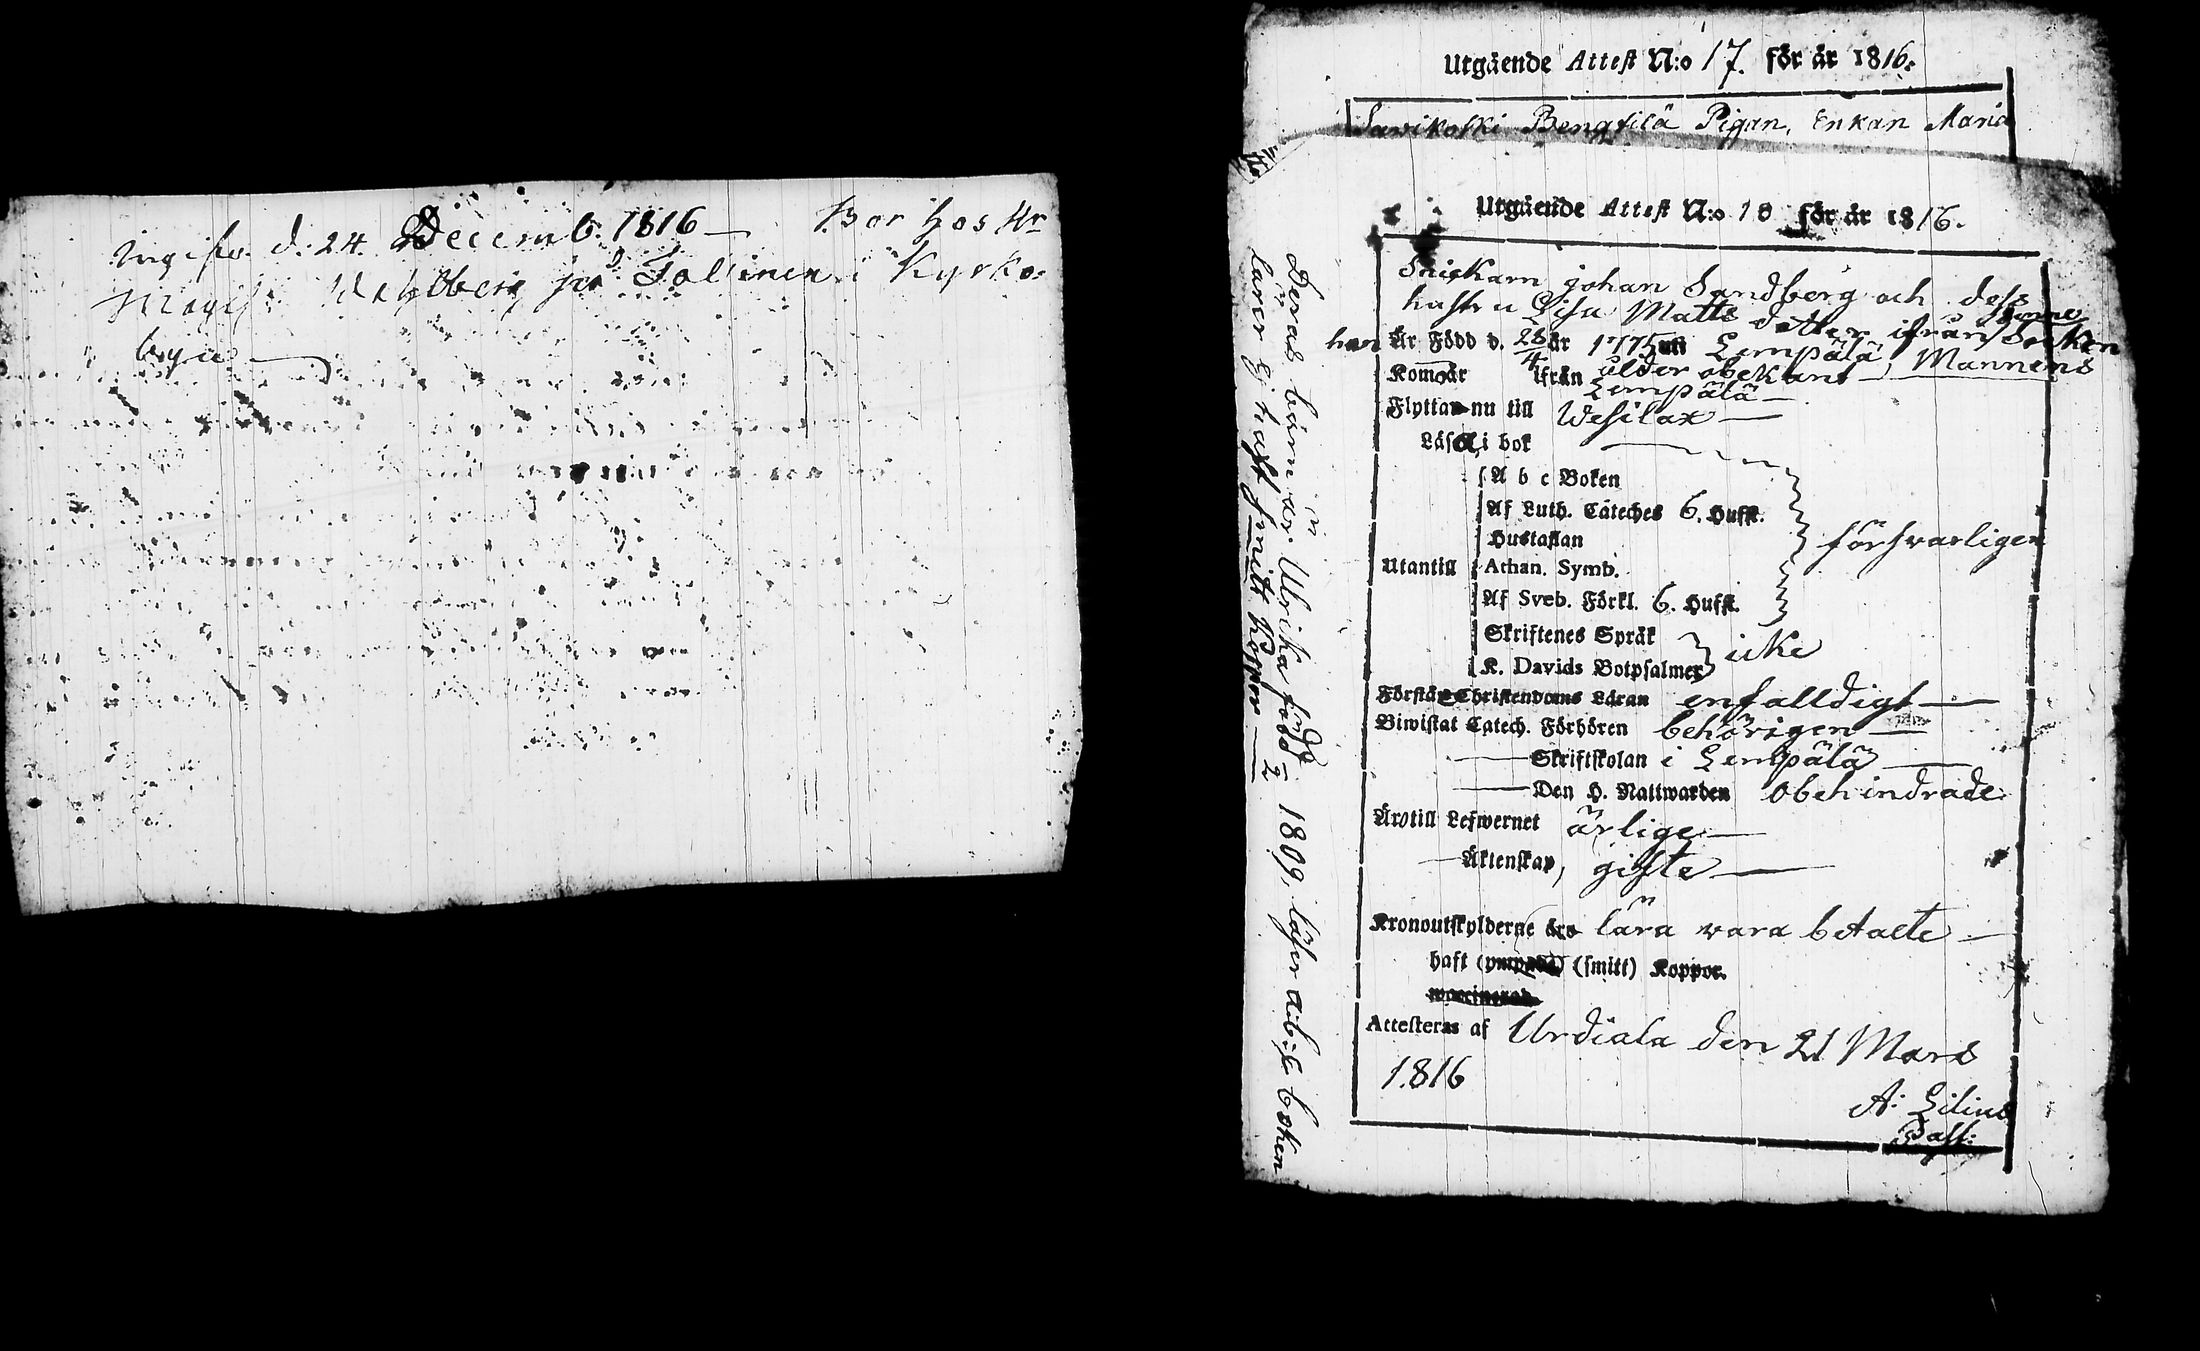 Ingifv. d. 24. Decemb. 1816 — Bor hos Hr
Magist. Wahlberg på Tolvinen i Kyrko-
byn —
Utgående Attest N:o 17. för år 1816.
Savikoski Bengtilä Pigan, Enkan Maria
Utgående Attest N:o 18 för år 1816.
Snickarn Johan Sandberg och dess
hustru Lisa Matts dotter ifrån denne Socken
han Är Född d. 28/4 år 1775 uti Lempälä, Mannens
ålder obekant —
Kom år ifrån Lempälä —
Flyttar nu till Wesilax —
Läsa i bok
A b c Boken
Af Luth. Cateches 6. Hufst.
Hustaflan
försvarligen
Utantill Athan. Symb.
Af Sveb. Förkl. 6. Hufst.
Skriftenes Språk
icke
K. Davids Botpsalmer
Förstår Christendoms Läran enfalldigt —
Biwistat Catech. Förhören behörigen —
— Skriftskolan i Lempälä —
— Den H. Nattwarden obehindrade
Äro till Lefwernet ärlige —
— Äktenskap, gifte —
Kronoutskylderne äro lära vara betalte —
haft (smitt) Koppor.
Attesteras af Urdiala den 21 Mars
1816
A: Lilius
Past:
Deras barn är Ulrika född 1809, läser abis boken
lärer ej haft smitt koppor —